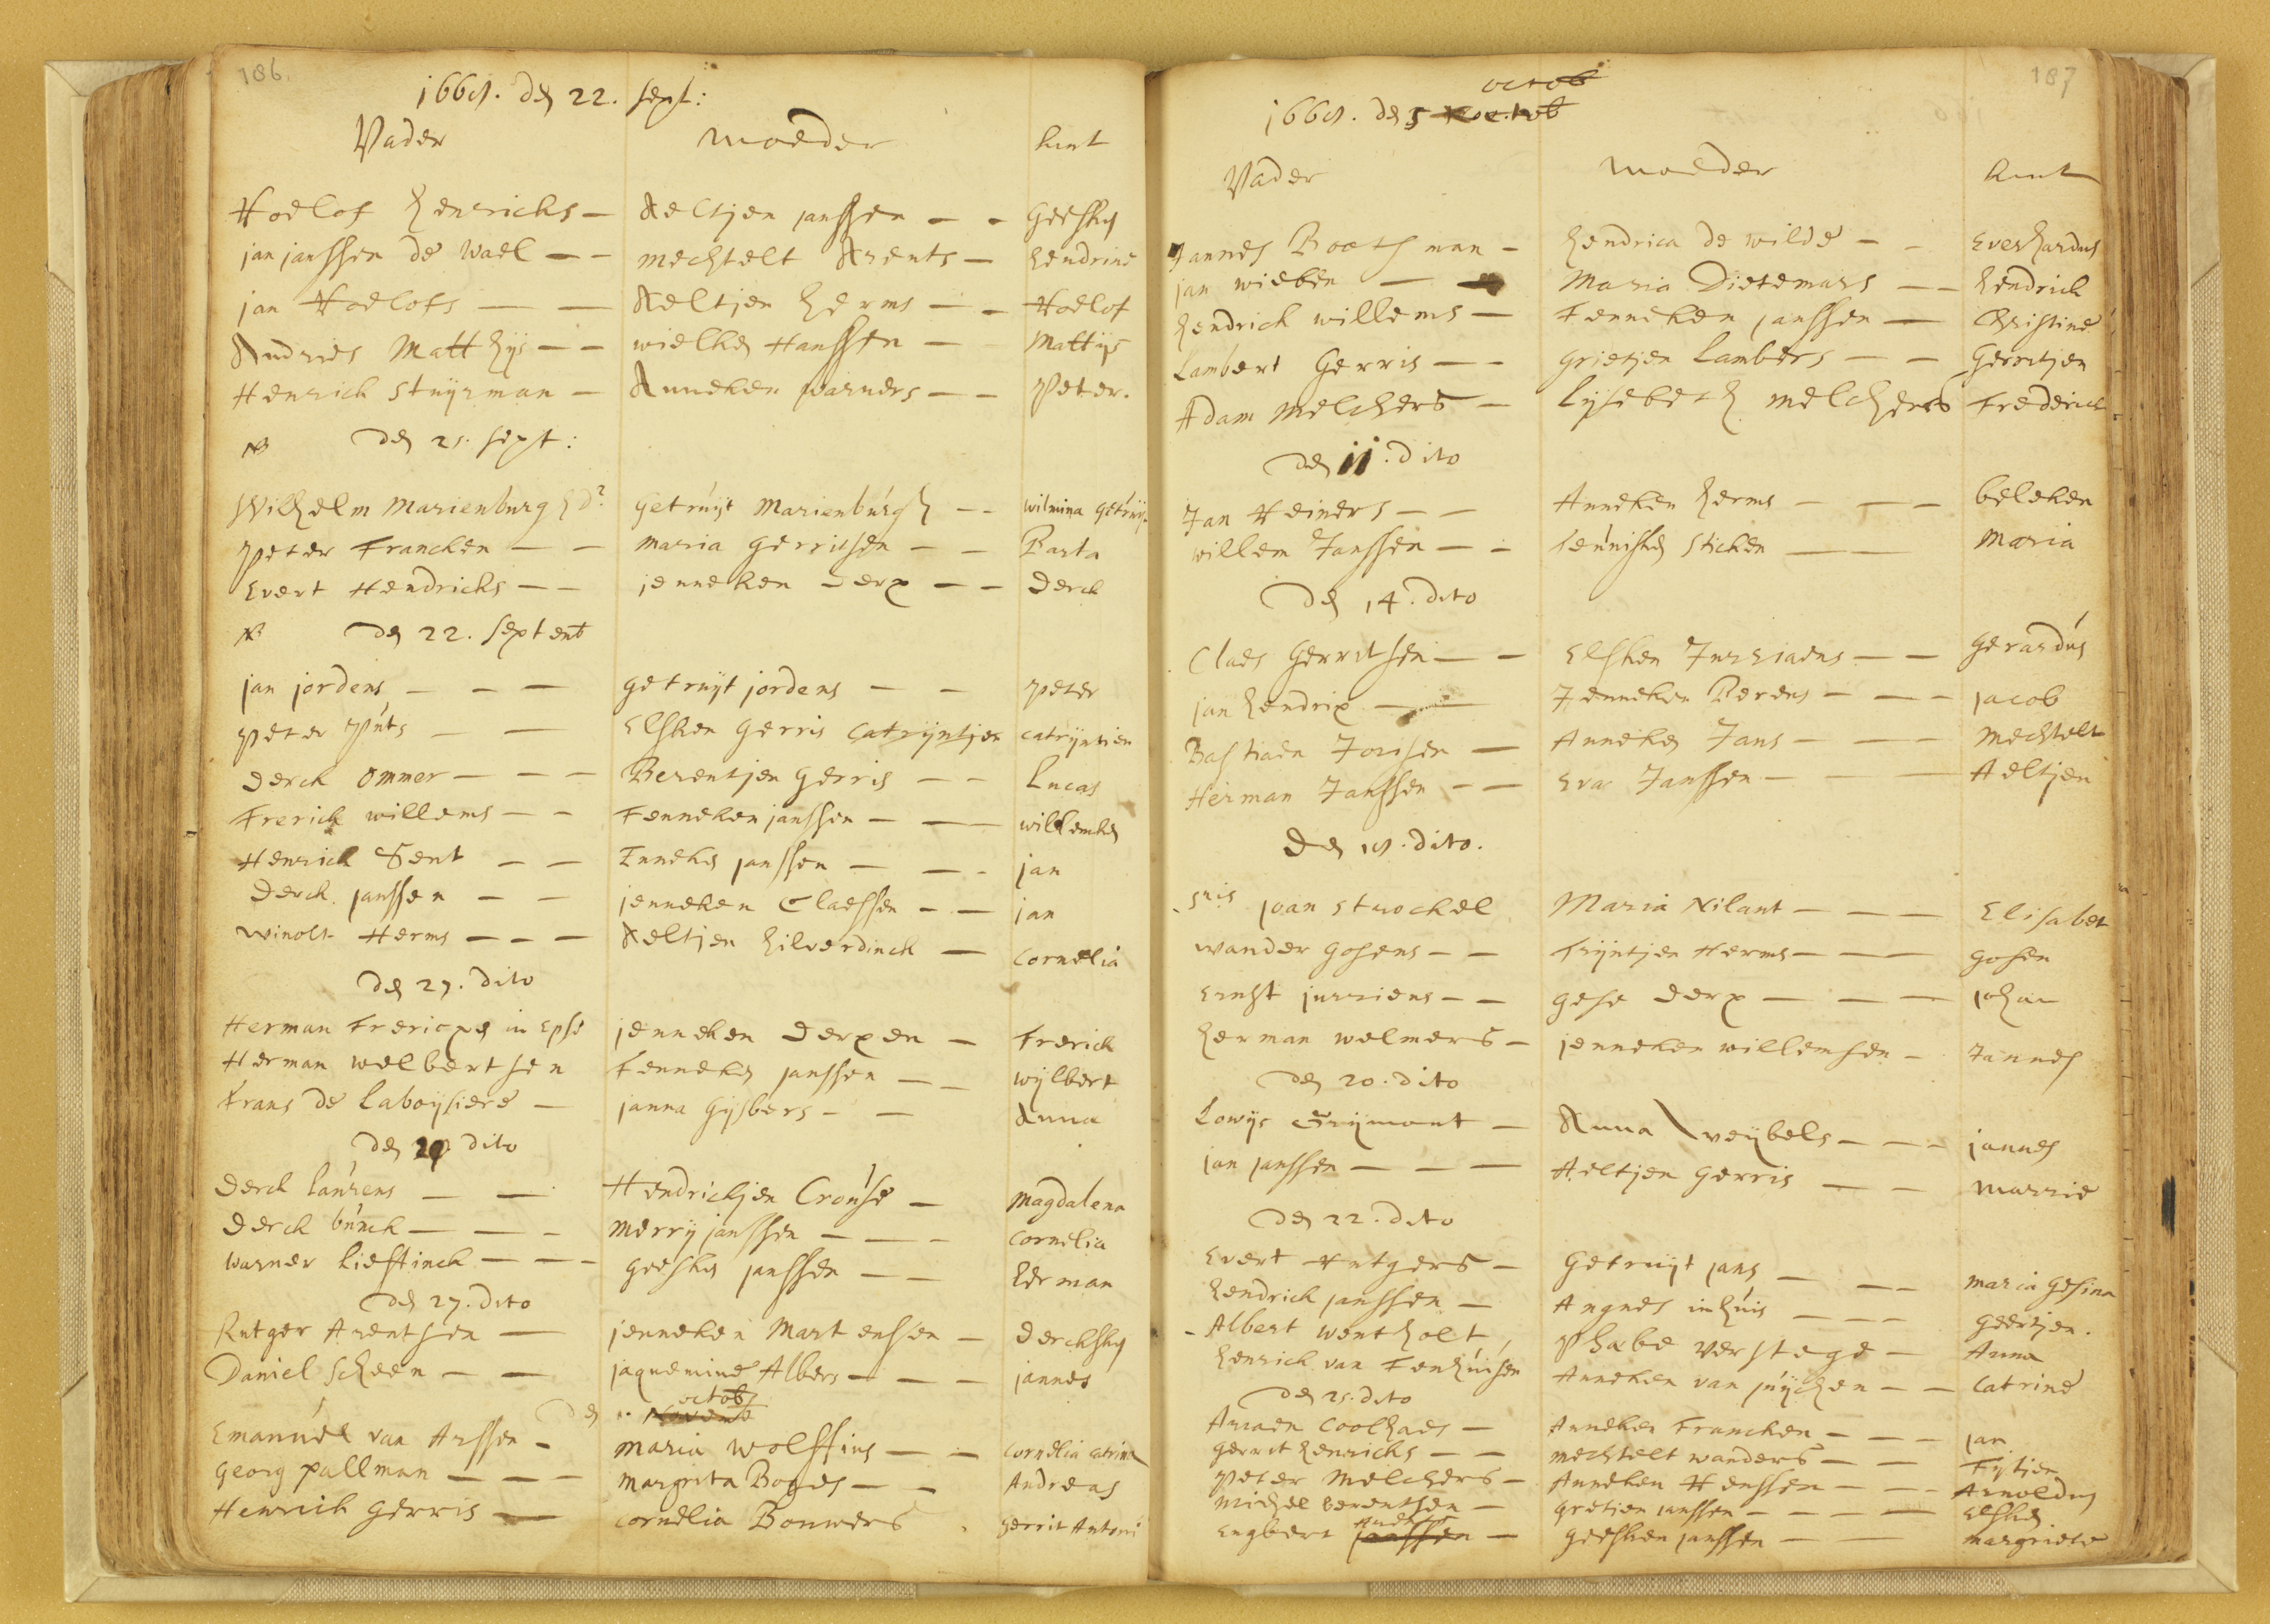 186.
166 . den 22. sept:
Vader moeder kint
Roelof henricks Aeltjen janssen Geesken
jan janssen de wael mechtelt Arents hendrine
jan Roelofs Aeltjen herms Roelof
Andries Matthijs wielken Hanssen Mattijs
Henrick stuijrman Anneken warners Peter.
den 25. sept:
Wilhelm Marienburg Getruijt Marienburgh wilmina Getruij
Peter Francken maria Gerritsen Barta
Evert Hendricks jenneken Derx Derck
den 22. septemb
jan jordens getruijt jordens Peter
Peter Puts Elsken Gerris Catrijntjen catrijntien
Derck ommer Berentjen Gerris Lucas
Frerick willems Fenneken janssen willemken
Henrick Sent Enneken janssen jan
Derck janssen jenneken Claessen jan
winolt Herms Aeltjen hilverdinck Cornelia
den 27. dito
Herman Fricxen in Epse jenneken Derxen Frerick
Herman welbertsen Fenneken janssen wijlbert
Frans de laboijsiere janna Gijsbers Anna
den 29 dito
Derck laurens Hendrickjen Crouse Magdalena
Derck bunck merrij janssen Cornelia
warner lieftinck Geesken janssen herman
den 27. dito
Rutger Arentsen jenneken Martensen Dercksken
Daniel scheen jaquemine Albers jannes
octob
den Novemb
Emanuel van Arssen maria wolffius cornelia catrina
Georg pallman margrita Boges Andreas
Henrick Gerris Cornelia Bouwers Gerrit Antoni
187
octob
166 . den 5 octob
Vader moeder kint
Jannes Boethman hendrica de wilde Everhardus
jan wieben Maria Dietemars hendrick
hendrick willems Fenneken janssen Christine
Lambert Gerris Grietjen Lambers Gerritjen
Adam Melchers lijsebeth melchers Frederick
den 11. dito
Jan Reiners Anneken herms beleken
willem Janssen teunisken sticken Maria
den 14. dito
Claes Gerritsen Elsken Jurriaens Gerardus
jan hendrix Jenneken Berens jacob
Bastiaen Jorisen Anneken Jans Mechtelt
Herman Janssen Eva Janssen Aeltjen
den 18. dito.
joan strockel Maria Nilant Elisabet
wander Gosens Trijntjen Herms Gosen
Ernst jurriens Gese Derx johan
herman welmers jenneken willemsen Jannes
den 20. dito
Lowijs Grijmont Anna weijbels jannes
jan janssen Aeltjen Gerris marrie
den 22. dito
Evert Rutgers Getruijt jans maria Gesina
hendrick janssen Angnes inhuis Geertjen.
Albert wentholt Phabe verstege Anna
henrick van Fenhuisen Anneken van puijchen Catrine
den 25. dito
Ariaen Coolhaes Anneken Francken jan
Gerrit henricks mechtelt wanders Fijtjen
Peter Melchers Anneken Henssen Arnoldus
michel berentsen Gretien janssen Elsken
Engbert janssen Geesken janssen margriete